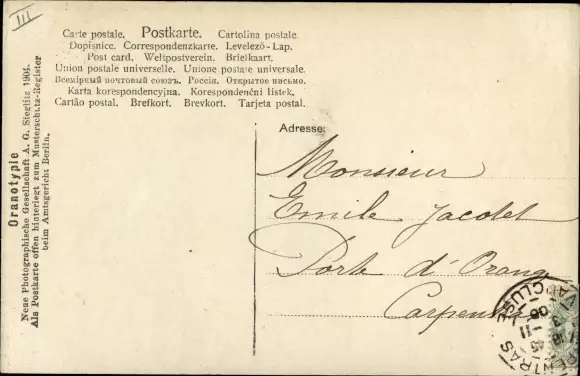 III
Carte postale. Postkarte. Cartolina postale.
Dopisnice. Correspondenzkarte. Levelező-Lap.
Post card. Weltpostverein. Briefkaart.
Union postale universelle. Unione postale universale.
Всемірный почтовый союзъ. Россія. Открытое письмо.
Karta korespondencyjna. Korespondenční listek.
Cartão postal. Brefkort. Brevkort. Tarjeta postal.
Oranotypie
Neue Photographische Gesellschaft A. G. Steglitz 1904.
Als Postkarte offen hinterlegt zum Musterschutz-Register
beim Amtsgericht Berlin.
Adresse:
Monsieur
Emile Jacotet
Porte d'Orange
Carpentras
VAUCLUSE